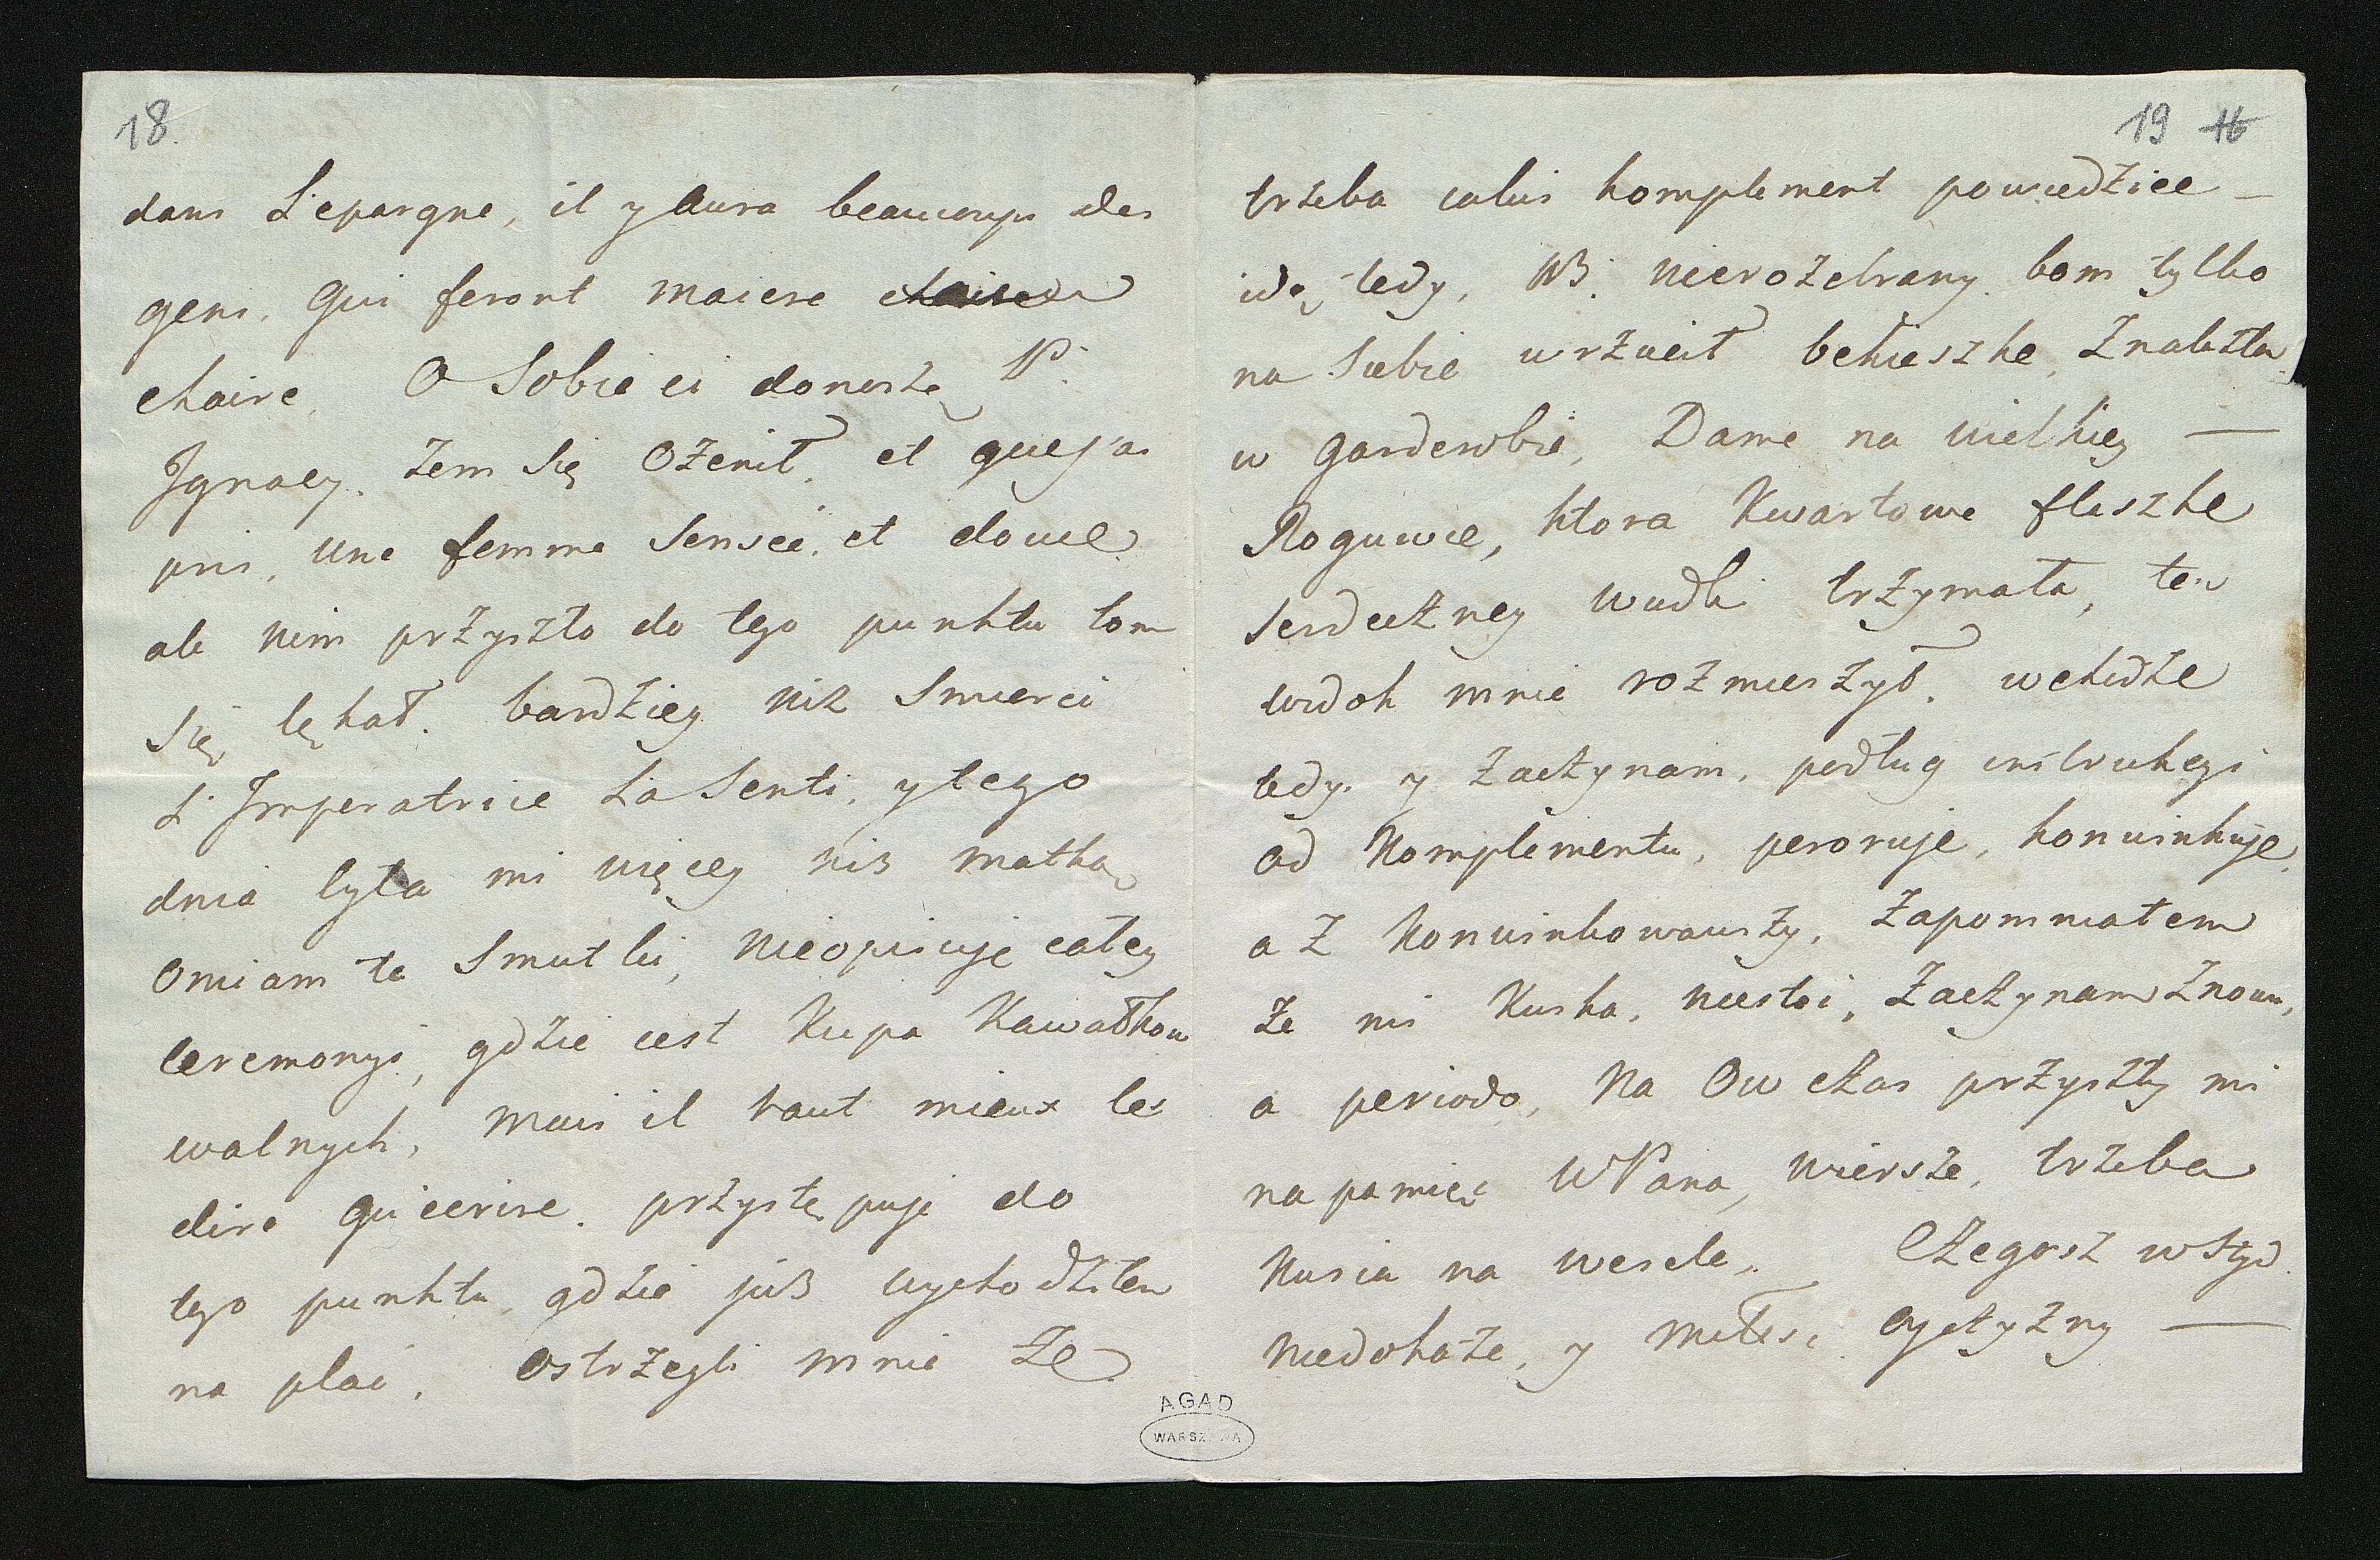 18
dans L'epargne, il y aura beaucoup des
gens, qui feront maiere
chaire, O Sobie ci donoszę P.
Ignacy. żem się Ożenił, et que j'ai
pris, une femme Senseé, et douce
ale nim przyszło do tego punktu tom
się lękał. bardziey niż Smierci
L'Imperatrice La Senti, y tego
dnia była mi więcey niż matką
Omiam te Smutki, nieopisuje całey
Ceremonyi, gdzie iest Kupa Kawałkow
walnych, mais il vaut mieux les
dire qu'ecrire. przystępuje do
tego punktu, gdzie już wychodziłem
na plac, ostrzegli mnie że
19 16
trzeba iakis komplement powiedziec —
idę tedy, NB. nierozebrany. bom tylko
na Siebie wrzucił bekieszke, Znalazła
w garderobie, Dame na wielkiey —
Roguwce, ktora Kwartowe flaszke
Serdeczney wudki trzymała, ten
widok mnie rozmieszył. wchodze
tedy. y Zaczynam, podług instrukcyi
od Komplementu, peroruje, konwinkuje,
aż Konwinkowawszy, Zapomniałem
że mi Kuska, niestoi, Zaczynam Znowu,
a periodo, Na Ow czas przyszły mi
na pamięć WPana, wiersze, trzeba
Kusia na wesele, Czegosz wstyd
niedokaże, y miłosc oyczyzny —
AGAD
WARSZAWA